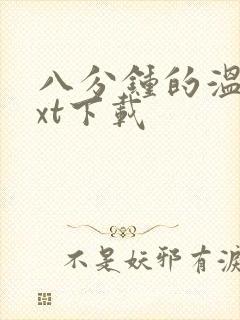 八分鍾的溫
xt下載
不是妖邪有淚